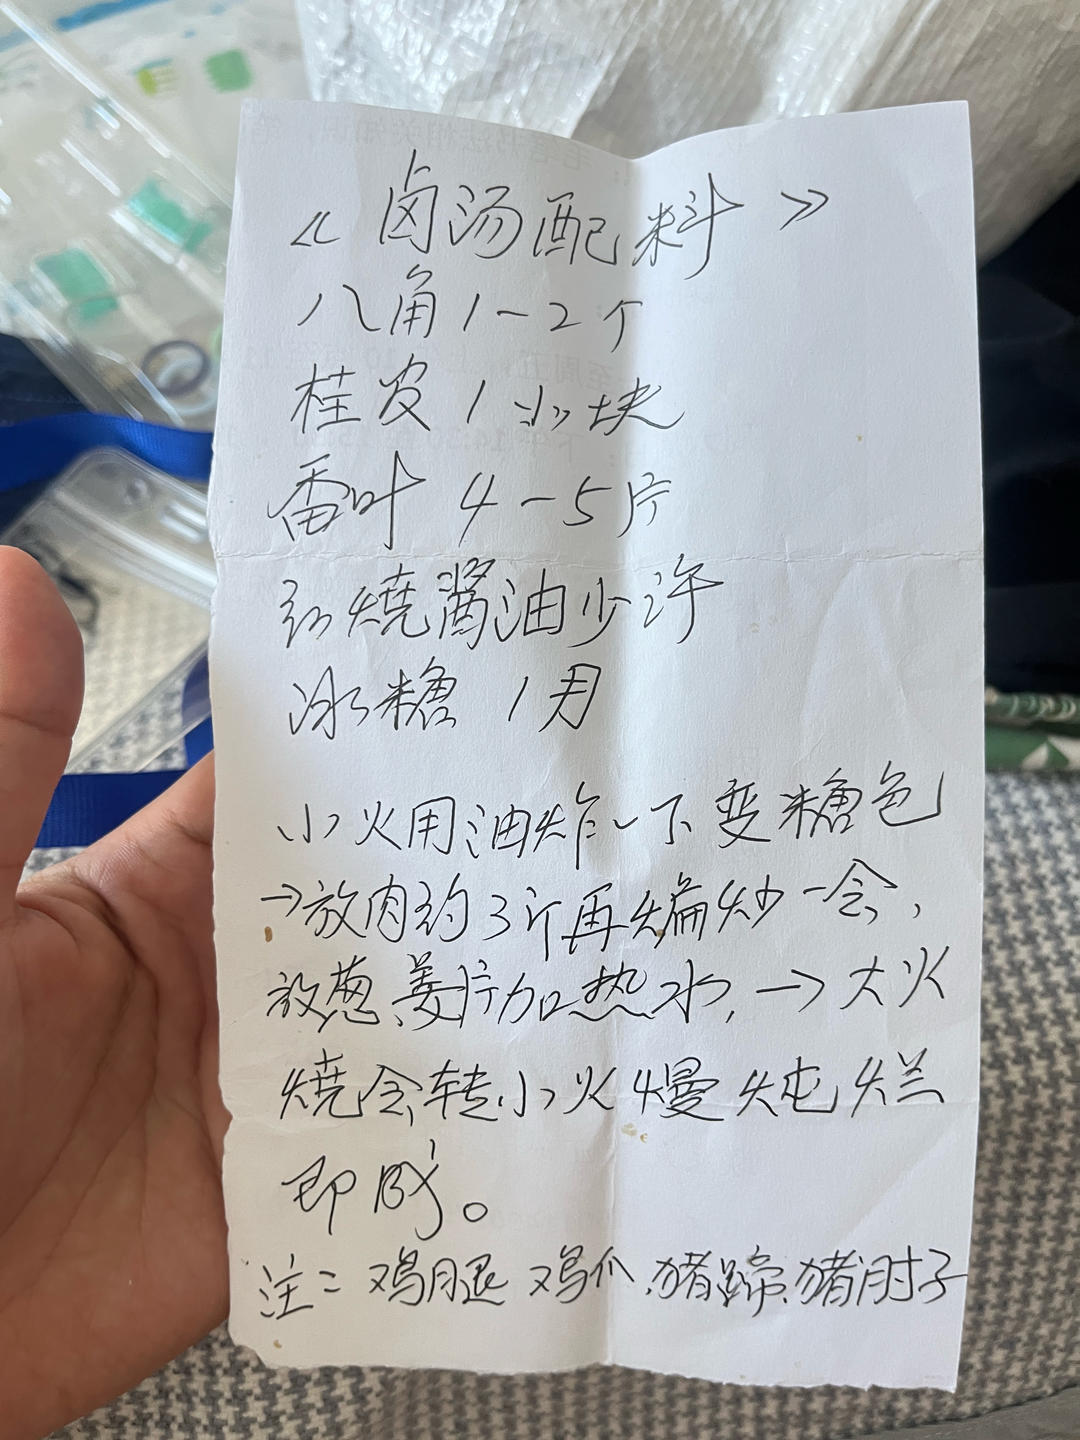 《卤汤配料》
八角1－2个
桂皮1小块
香叶 4－5片
红烧酱油少许
冰糖 1月
小火用油炸一下变糖色
→放肉约3斤再煸炒一会，
放葱、姜片加热水，→大火
烧会转小火慢炖烂
即成。
注：鸡腿 鸡爪、猪蹄、猪肘子